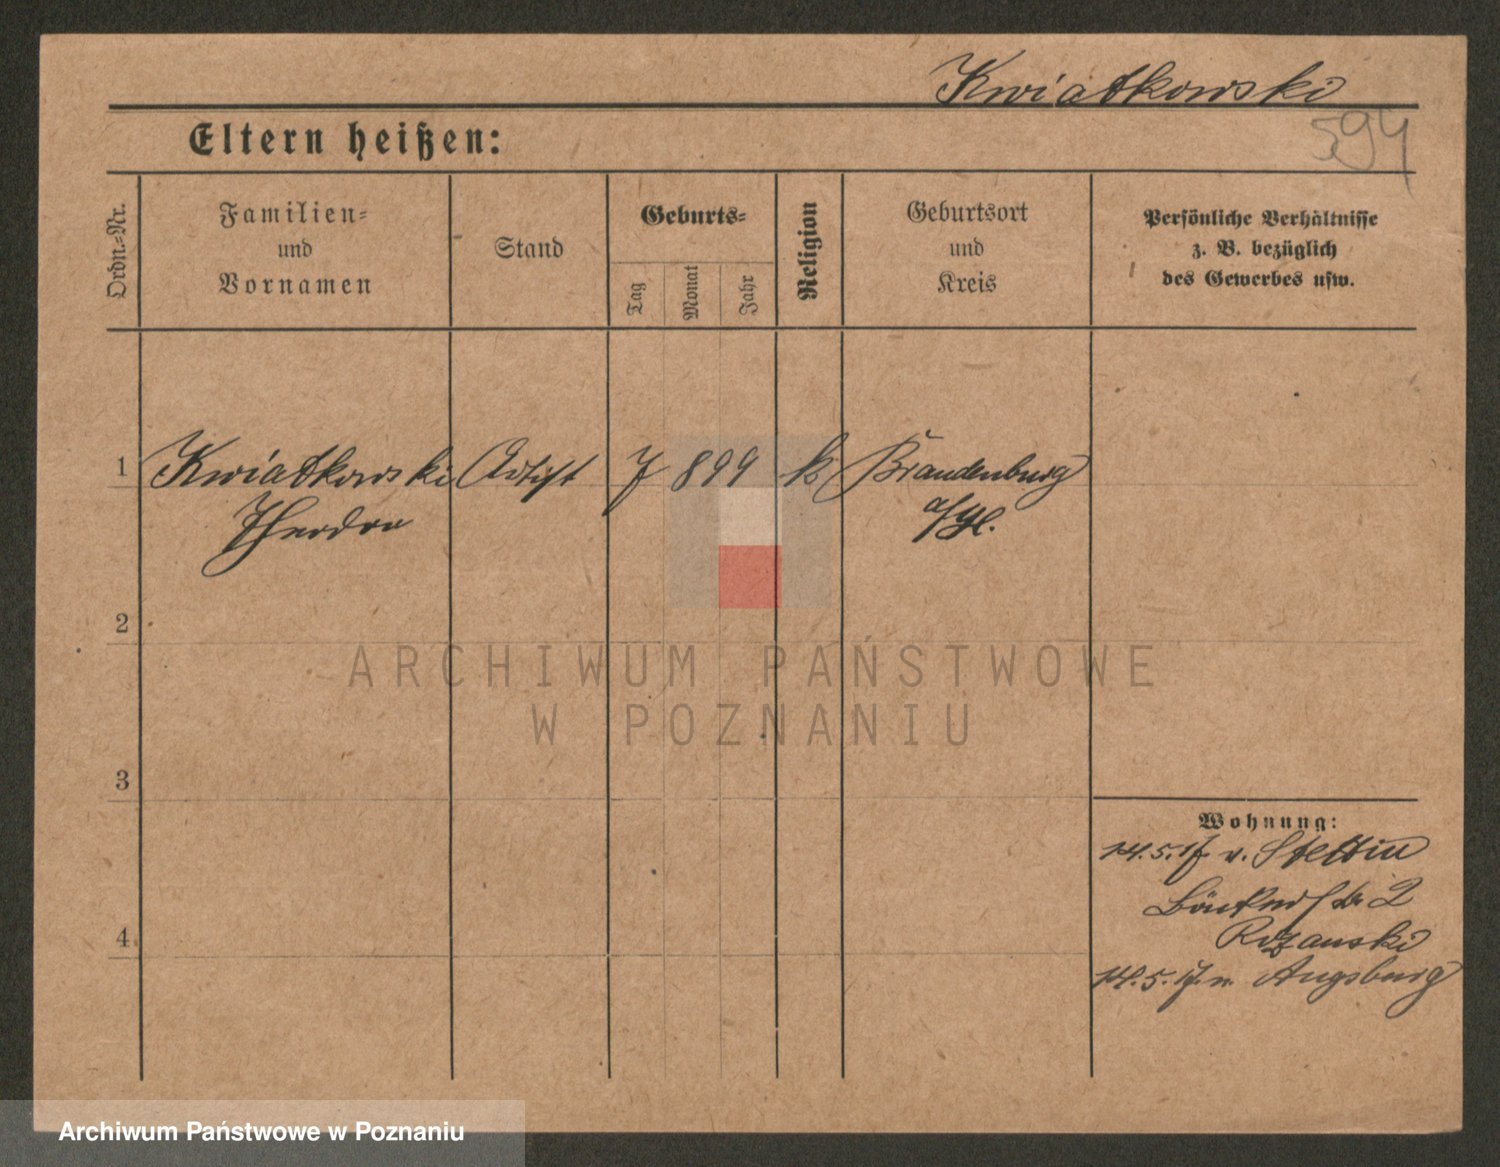 Kwiatkowski
594
Eltern heißen:
Ordn.-Nr.
Familien-
und
Vornamen
Stand
Geburts-
Tag
Monat
Jahr
Religion
Geburtsort
und
Kreis
Persönliche Verhältnisse
z. B. bezüglich
des Gewerbes usw.
1 Kwiatkowski Artist 7 8 99 k Brandenburg
Theodor a/H.
2
3
4
Wohnung:
14.5.17 v. Stettin
Bäckerstr 2
Rozanski
14.5.17. n. Augsburg
ARCHIWUM PAŃSTWOWE
W POZNANIU
Archiwum Państwowe w Poznaniu